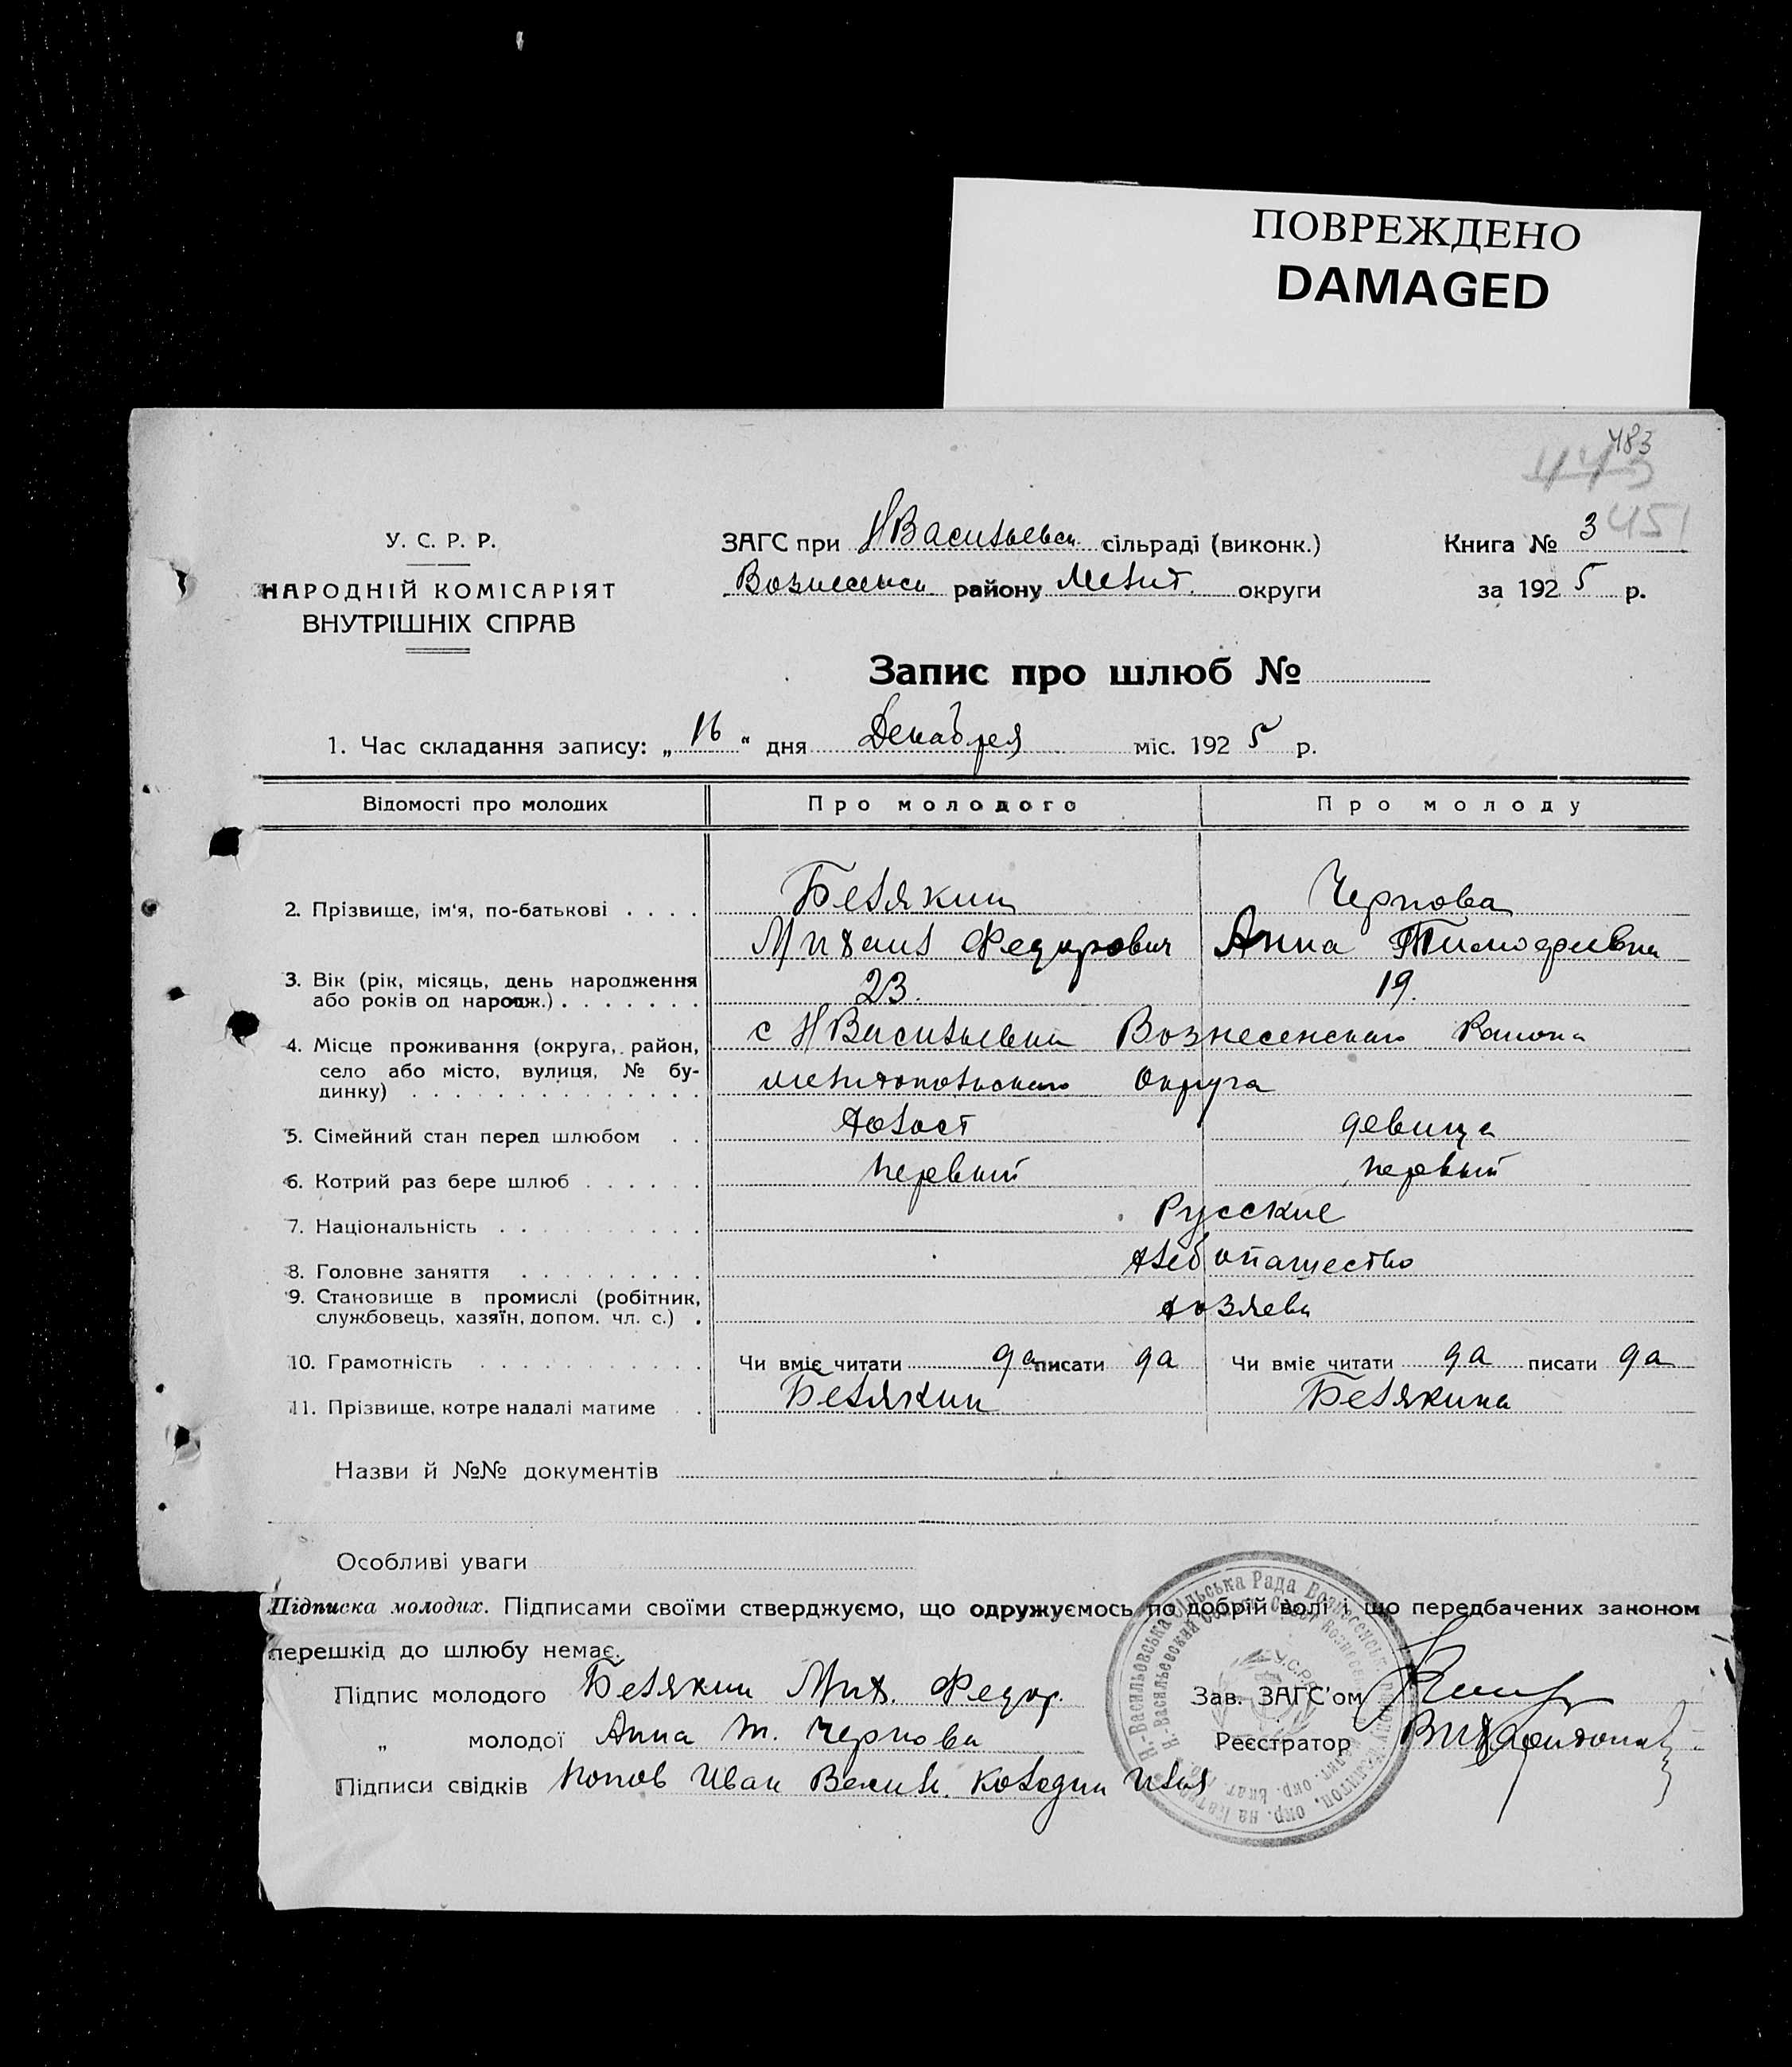 ПОВРЕЖДЕНО
DAMAGED
483
443
451
У. С. Р. Р.
НАРОДНІЙ КОМІСАРІЯТ
ВНУТРІШНІХ СПРАВ
ЗАГС при НВасильевск. сільраді (виконк.)
Вознесенск району Мелит. округи
Книга № 3
за 1925 р.
Запис про шлюб №
1. Час складання запису: „16“ дня Декабря міс. 1925 р.
Відомості про молодих Про молодого Про молоду
2. Прізвище, ім'я, по-батькові Белякин Чернова
Михаил Федорович Анна Тимофеивна
3. Вік (рік, місяць, день народження
або років од народж.) 23. 19.
4. Місце проживання (округа, район, с НВасильевка Вознесенского Района
село або місто, вулиця, № бу-
динку) Мелитопольского Округа
5. Сімейний стан перед шлюбом холост девица
6. Котрий раз бере шлюб первый первый
7. Національність Русские
8. Головне заняття хлебопашество
9. Становище в промислі (робітник,
службовець, хазяїн, допом. чл. с.) хозяева
10. Грамотність Чи вміє читати да писати да Чи вміє читати да писати да
11. Прізвище, котре надалі матиме Белякин Белякина
Назви й №№ документів
Особливі уваги
Підписка молодих. Підписами своїми стверджуємо, що одружуємось по добрій волі і що передбачених законом
перешкід до шлюбу немає.
Підпис молодого Белякин Мих. Федор. Зав. ЗАГС'ом
„ молодої Анна Т. Чернова Реєстратор
Підписи свідків Попов Иван Васил. Колодин Илья
Н.-Васильовська Сільська Рада Вознесенськ.
Н.-Васильевский
У.С.Р.Р.